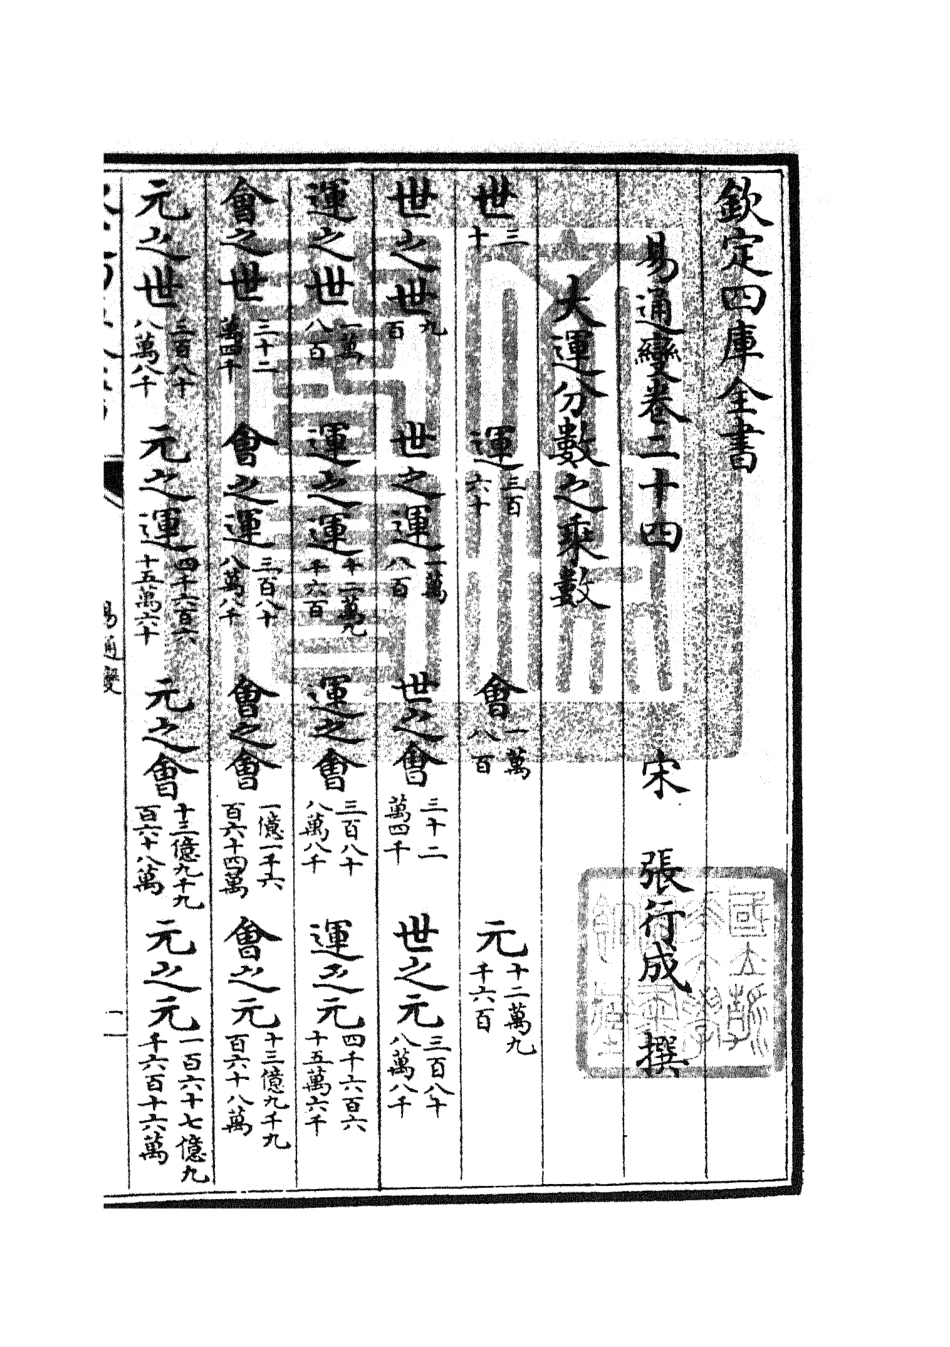 欽定四庫全書
易通變卷二十四　宋　張行成　撰
大運分數之乘數
世三十　運三百六十　會一萬八百　元十二萬九千六百
世之世九百　世之運一萬八百　世之會三十二萬四千　世之元三百八十八萬八千
運之世一萬八百　運之運十二萬九千六百　運之會三百八十八萬八千　運之元四千六百六十五萬六千
會之世三十二萬四千　會之運三百八十八萬八千　會之會一億一千六百六十四萬　會之元十三億九千九百六十八萬
元之世三百八十八萬八千　元之運四千六百六十五萬六十　元之會十三億九千九百六十八萬　元之元一百六十七億九千六百十六萬
易通變